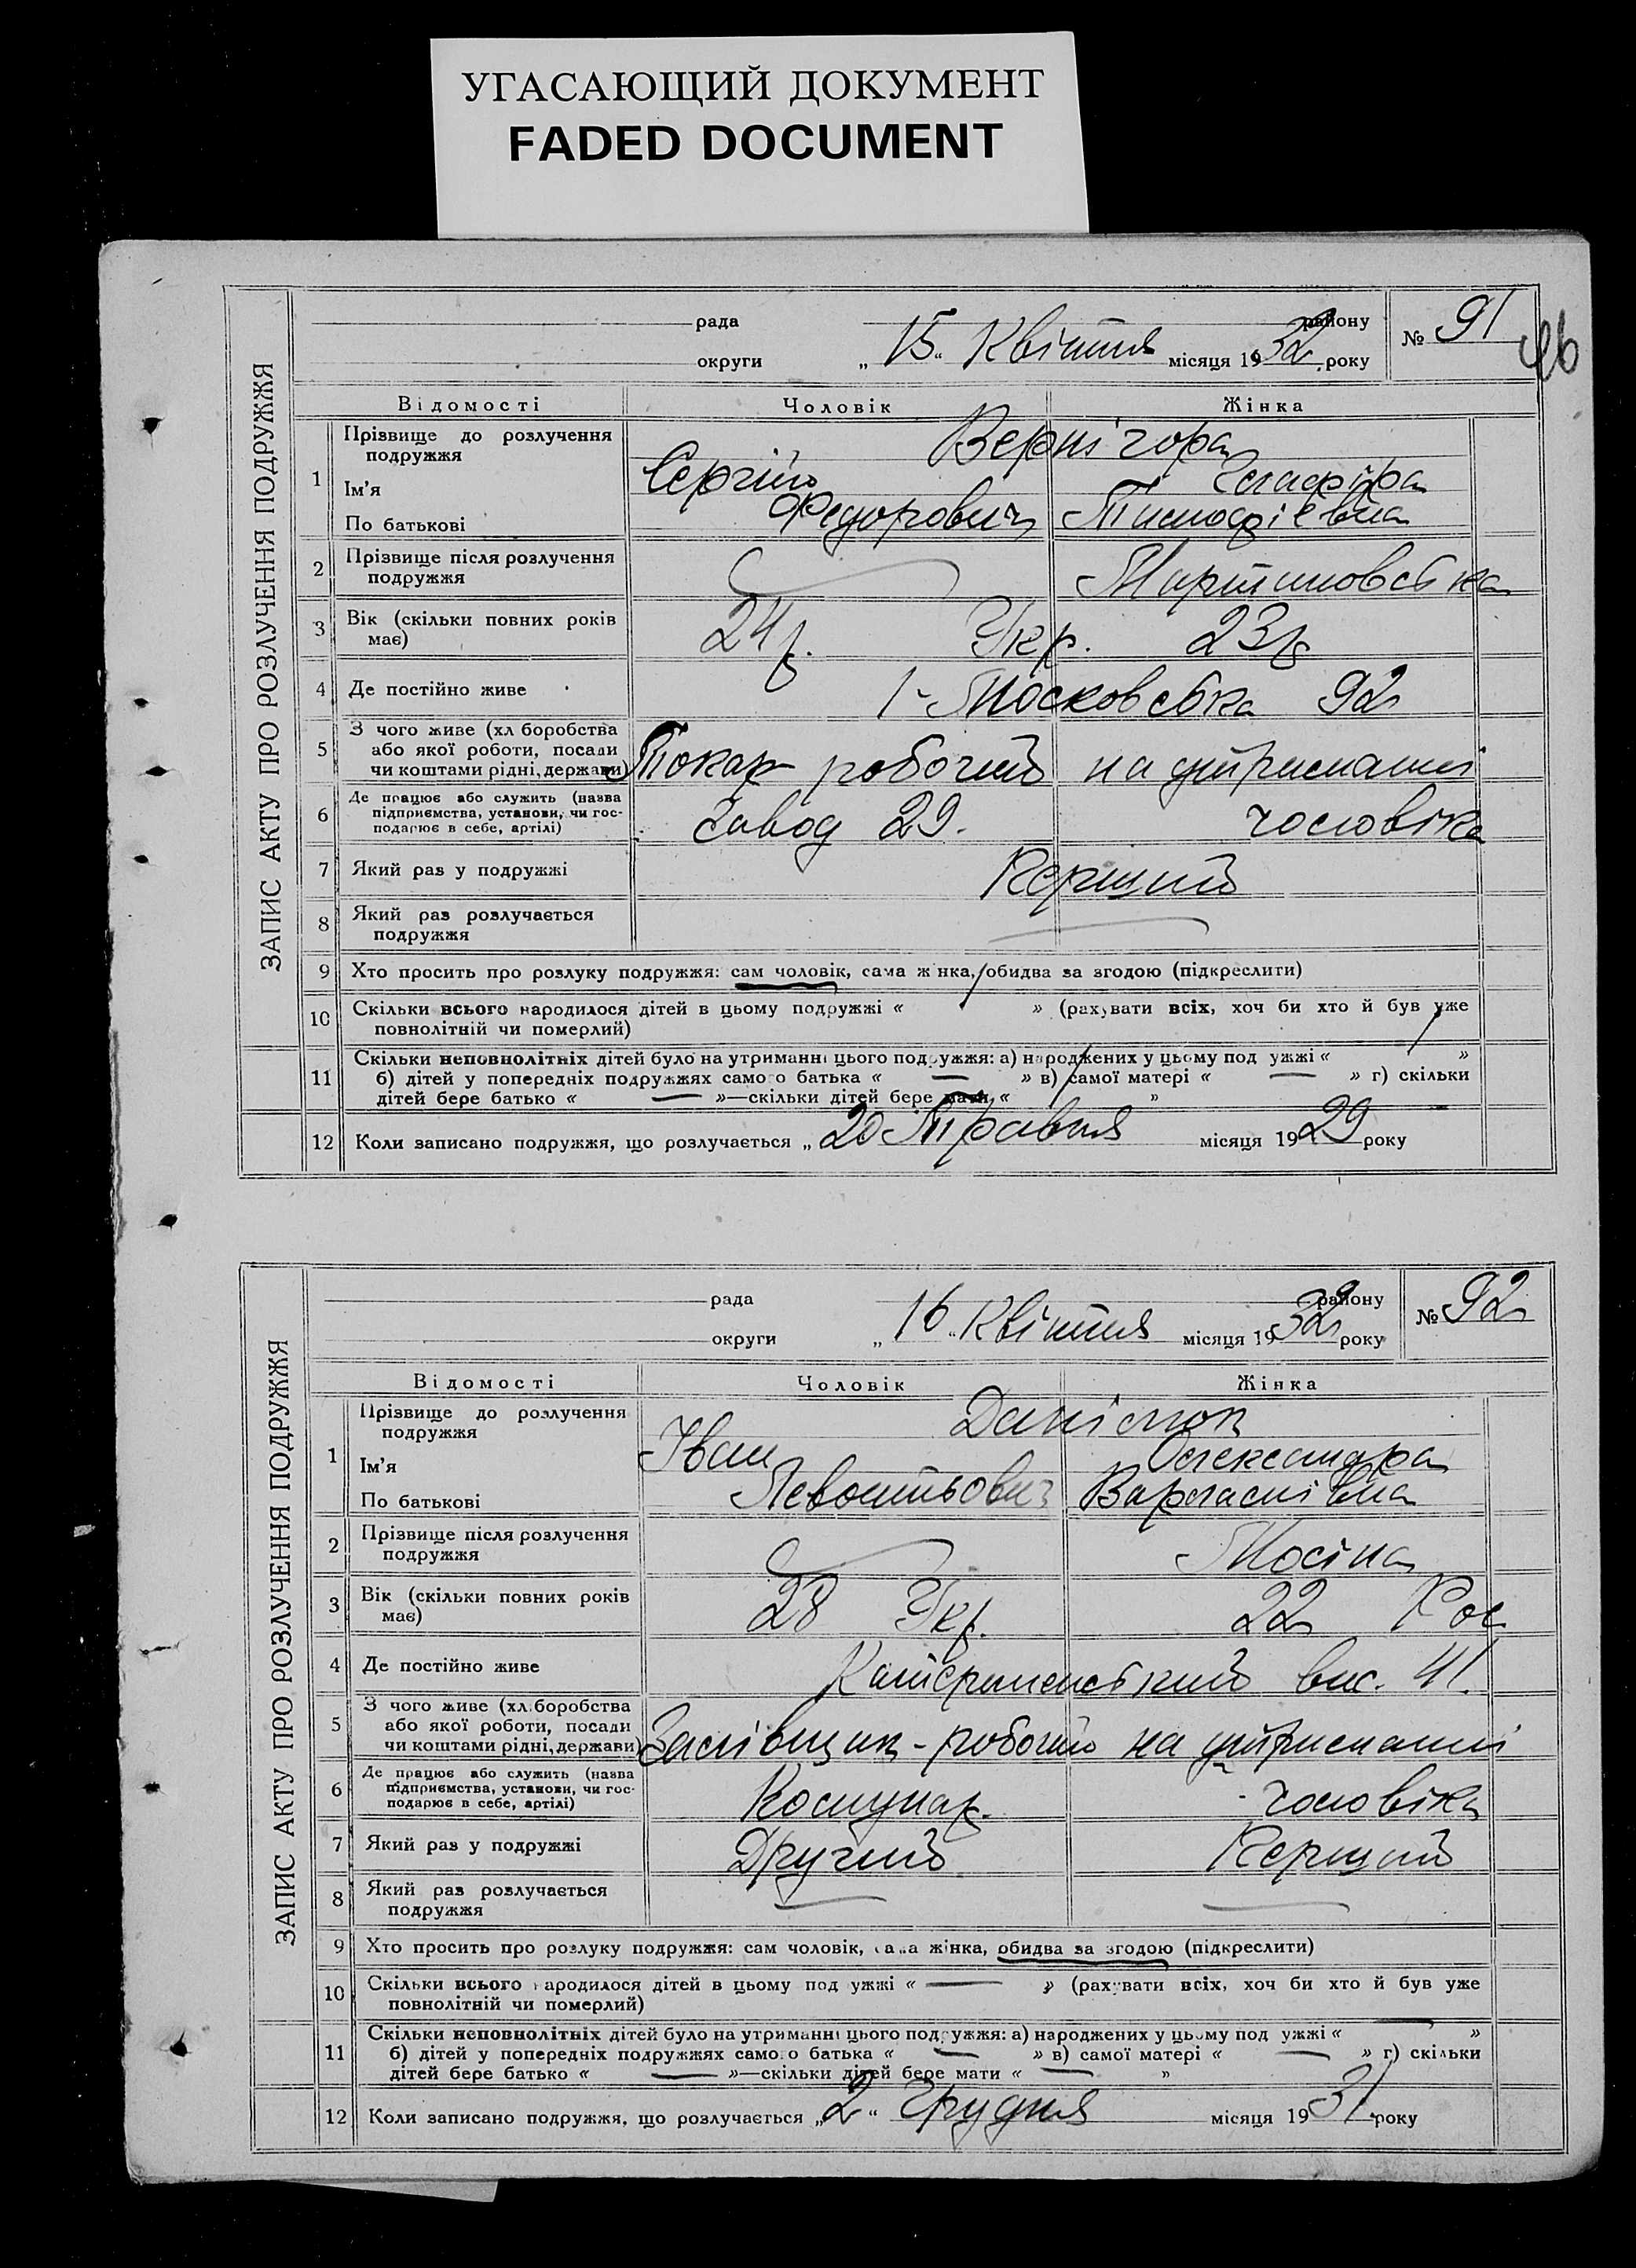 УГАСАЮЩИЙ ДОКУМЕНТ
FADED DOCUMENT
ЗАПИС АКТУ ПРО РОЗЛУЧЕННЯ ПОДРУЖЖЯ
рада району
округи „ 15 “ Квітня місяця 1932 року
№ 91
46
Відомості Чоловік Жінка
1 Прізвище до розлучення подружжя Вернігора
Ім'я Сергій Глафіра
По батькові Федорович Тимофіївна
2 Прізвище після розлучення
подружжя Мартиновська
3 Вік (скільки повних років
має) 24 р. Укр. 23 р
4 Де постійно живе 1-Московська 92
5 З чого живе (хл боробства
або якої роботи, посади
чи коштами рідні, держави) Токар робочий на утриманні
6 Де працює або служить (назва
підприємства, установи, чи гос-
подарює в себе, артілі) Завод 29. чоловіка
7 Який раз у подружжі Перший
8 Який раз розлучається
подружжя
9 Хто просить про розлуку подружжя: сам чоловік, сама жінка, обидва за згодою (підкреслити)
10 Скільки всього народилося дітей в цьому подружжі « » (рахувати всіх, хоч би хто й був уже
повнолітній чи померлий)
11 Скільки неповнолітніх дітей було на утриманні цього подружжя: а) народжених у цьому под ужжі « »
б) дітей у попередніх подружжях самого батька « — » в) самої матері « — » г) скільки
дітей бере батько « — »—скільки дітей бере мати « »
12 Коли записано подружжя, що розлучається „ 20 Травня місяця 1929 року
ЗАПИС АКТУ ПРО РОЗЛУЧЕННЯ ПОДРУЖЖЯ
рада району
округи „ 16 “ Квітня місяця 1932 року
№ 92
Відомості Чоловік Жінка
1 Прізвище до розлучення
подружжя Данілюк
Ім'я Іван Олександра
По батькові Левонтьович Варламівна
2 Прізвище після розлучення
подружжя Мосіна
3 Вік (скільки повних років
має) 28 Укр. 22 Рос
4 Де постійно живе Катеринінський вис. 41.
5 З чого живе (хл.боробства
або якої роботи, посади
чи коштами рідні, держави) робочий на утриманні
6 Де працює або служить (назва
підприємства, установи, чи гос-
подарює в себе, артілі) Комунар. чоловіка
7 Який раз у подружжі Другий Перший
8 Який раз розлучається
подружжя — —
9 Хто просить про розлуку подружжя: сам чоловік, сама жінка, обидва за згодою (підкреслити)
10 Скільки всього народилося дітей в цьому под ужжі « — » (рахувати всіх, хоч би хто й був уже
повнолітній чи померлий)
11 Скільки неповнолітніх дітей було на утриманні цього подружжя: а) народжених у цьому под ужжі « — »
б) дітей у попередніх подружжях самого батька « — » в) самої матері « — » г) скільки
дітей бере батько « — »—скільки дітей бере мати « — »
12 Коли записано подружжя, що розлучається „ 2 “ Грудня місяця 1931 року